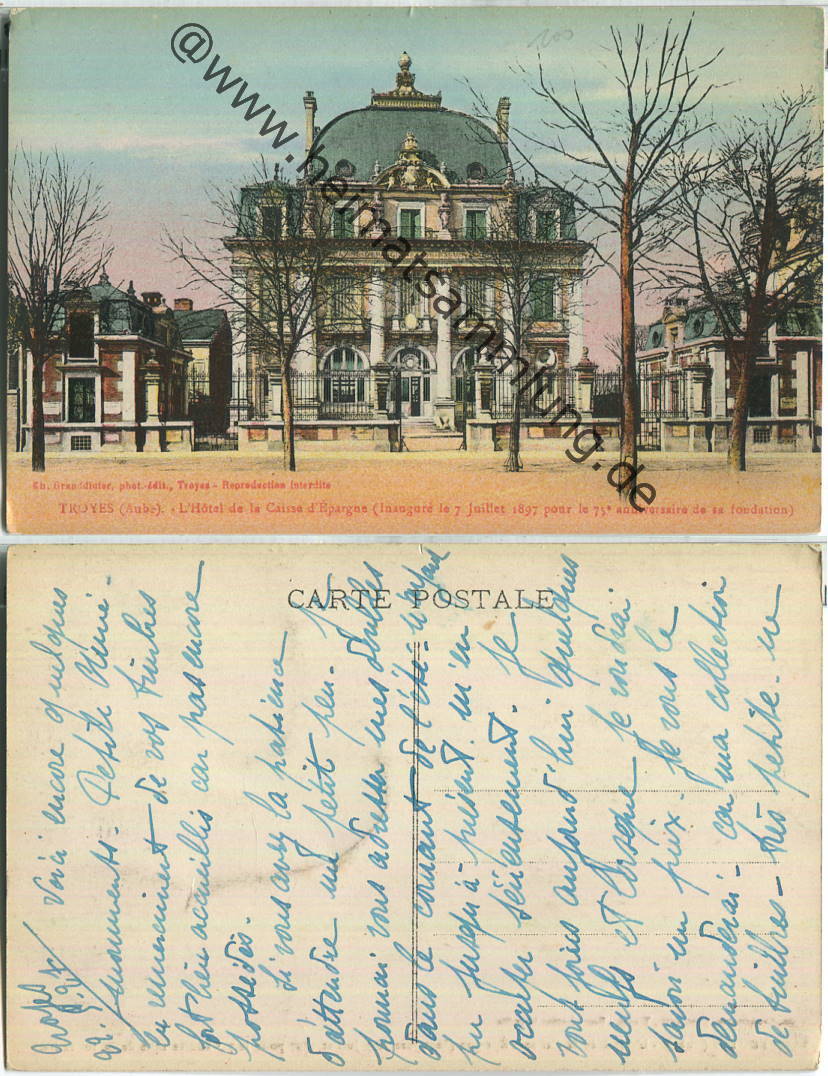 @www.heimatsammlung.de
Ch. Granddidier, phot.-édit., Troyes - Reproduction interdite
TROYES (Aube). - L'Hôtel de la Caisse d'Épargne (Inauguré le 7 Juillet 1897 pour le 75e anniversaire de sa fondation)
CARTE POSTALE
Voici encore quelques
monuments. Petite
remerciement de vos timbres
très accueillis car pas encore
possédés.
Si vous avez la patience
d'attendre un petit peu. Je
pourrai vous adresser mes doubles
dans le courant de l'été. n'ayant
pu jusqu'à présent m'en
occuper sérieusement. Je
vous joins aujourd'hui quelques
neufs et lorsque je voudrai
savoir un prix. Je vous le
demanderai - car ma collection
de timbres - très petite. en